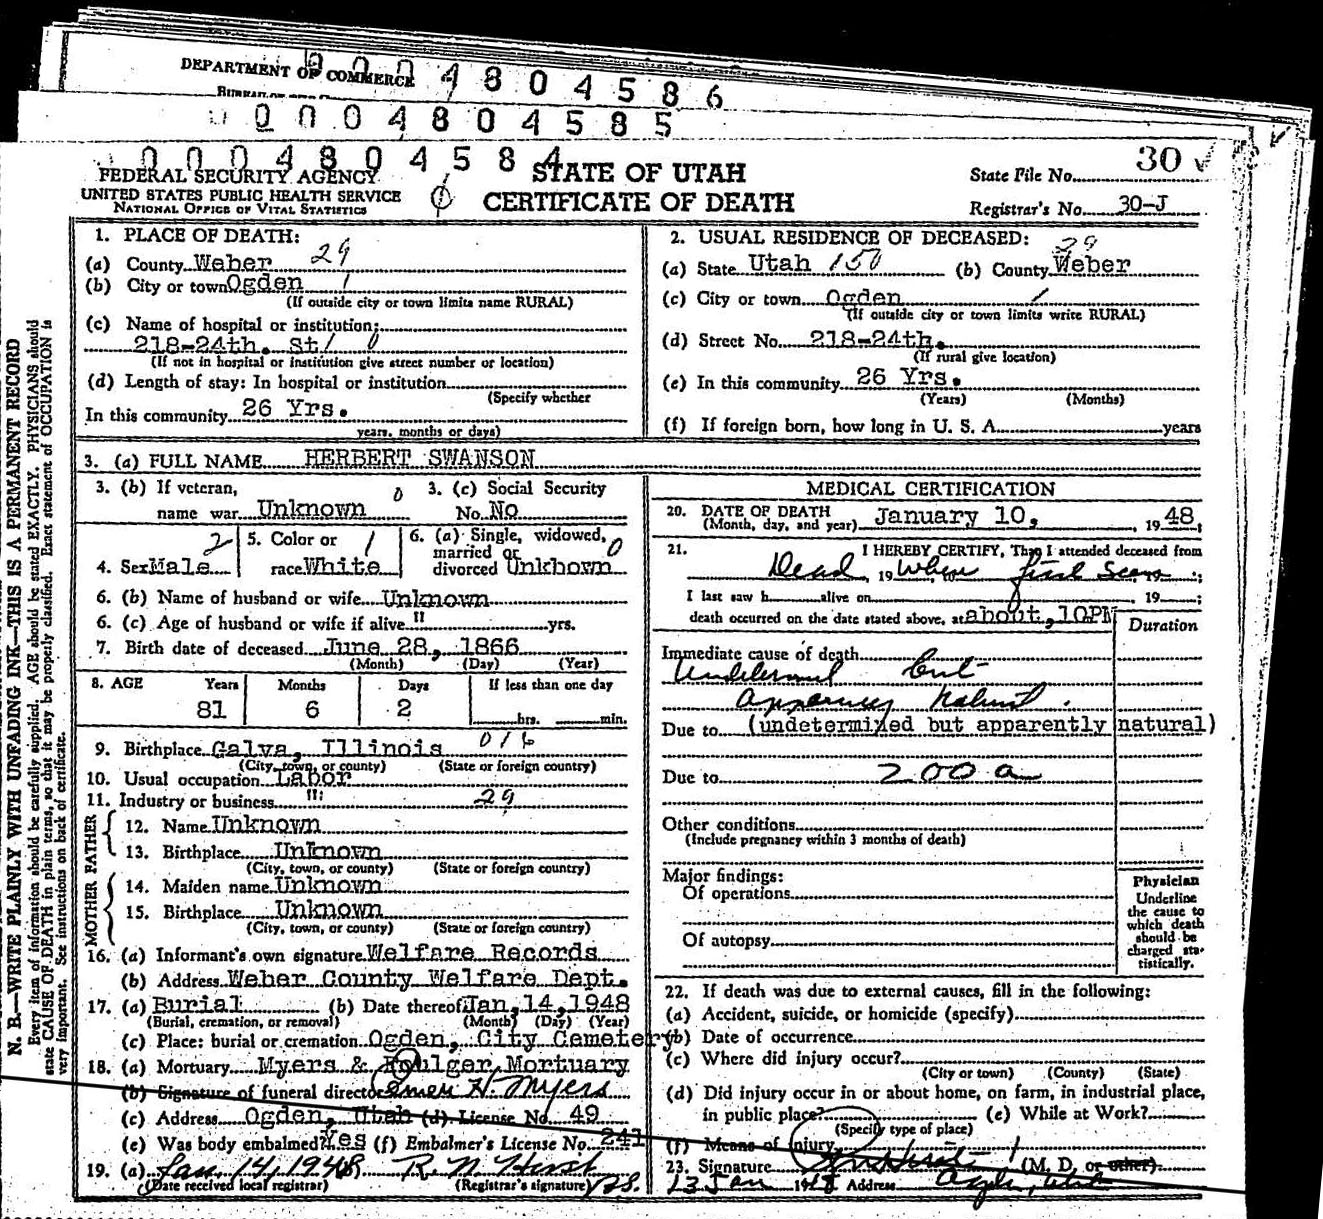 DEPARTMENT OF COMMERCE
0004804586
0004804585
0004804584
FEDERAL SECURITY AGENCY
UNITED STATES PUBLIC HEALTH SERVICE
NATIONAL OFFICE OF VITAL STATISTICS
STATE OF UTAH
CERTIFICATE OF DEATH
State File No. 30 ✓
Registrar's No. 30-J
N. B.—WRITE PLAINLY WITH UNFADING INK—THIS IS A PERMANENT RECORD
Every item of information should be carefully supplied. AGE should be stated EXACTLY. PHYSICIANS should
state CAUSE OF DEATH in plain terms, so that it may be properly classified. Exact statement of OCCUPATION is
very important. See instructions on back of certificate.
1. PLACE OF DEATH:
(a) County Weber 29
(b) City or town Ogden 1
(If outside city or town limits name RURAL)
(c) Name of hospital or institution:
218-24th. St/ 0
(If not in hospital or institution give street number or location)
(d) Length of stay: In hospital or institution
(Specify whether
In this community 26 Yrs.
years, months or days)
2. USUAL RESIDENCE OF DECEASED:
(a) State Utah 150 (b) County Weber 29
(c) City or town Ogden 1
(If outside city or town limits write RURAL)
(d) Street No. 218-24th.
(If rural give location)
(e) In this community 26 Yrs.
(Years) (Months)
(f) If foreign born, how long in U. S. A. years
3. (a) FULL NAME HERBERT SWANSON
3. (b) If veteran, name war Unknown 0
3. (c) Social Security No. No
4. Sex Male 2
5. Color or race White 1
6. (a) Single, widowed, married or divorced Unkhown 0
6. (b) Name of husband or wife Unknown
6. (c) Age of husband or wife if alive " yrs.
7. Birth date of deceased June 28, 1866
(Month) (Day) (Year)
8. AGE Years Months Days If less than one day
81 6 2 hrs. min.
9. Birthplace Galva, Illinois 016
(City, town, or county) (State or foreign country)
10. Usual occupation Labor
11. Industry or business " 29
FATHER
12. Name Unknown
13. Birthplace Unknown
(City, town, or county) (State or foreign country)
MOTHER
14. Maiden name Unknown
15. Birthplace Unknown
(City, town, or county) (State or foreign country)
16. (a) Informant's own signature Welfare Records
(b) Address Weber County Welfare Dept.
17. (a) Burial (b) Date thereof Jan, 14, 1948
(Burial, cremation, or removal) (Month) (Day) (Year)
(c) Place: burial or cremation Ogden, City Cemetery
18. (a) Mortuary Myers & Foulger Mortuary
(b) Signature of funeral director Elmer H. Myers
(c) Address Ogden, Utah (d) License No. 49
(e) Was body embalmed? Yes (f) Embalmer's License No. 241
19. (a) Jan. 14, 1948 R. N. Hirst
(Date received local registrar) (Registrar's signature)
MEDICAL CERTIFICATION
20. DATE OF DEATH
(Month, day, and year) January 10, , 1948
21. I HEREBY CERTIFY, That I attended deceased from
Dead , 19 When , to first seen
I last saw h alive on , 19 ;
death occurred on the date stated above, at about, 10PM
Duration
Immediate cause of death
Undetermined but
apparently natural.
Due to (undetermined but apparently natural)
Due to 200a
Other conditions
(Include pregnancy within 3 months of death)
Major findings:
Of operations
Of autopsy
Physician
Underline
the cause to
which death
should be
charged sta-
tistically.
22. If death was due to external causes, fill in the following:
(a) Accident, suicide, or homicide (specify)
(b) Date of occurrence
(c) Where did injury occur?
(City or town) (County) (State)
(d) Did injury occur in or about home, on farm, in industrial place,
in public place? (e) While at Work?
(Specify type of place)
(f) Means of injury
23. Signature (M. D. or other)
13 Jan 1948 Address Ogden, Utah